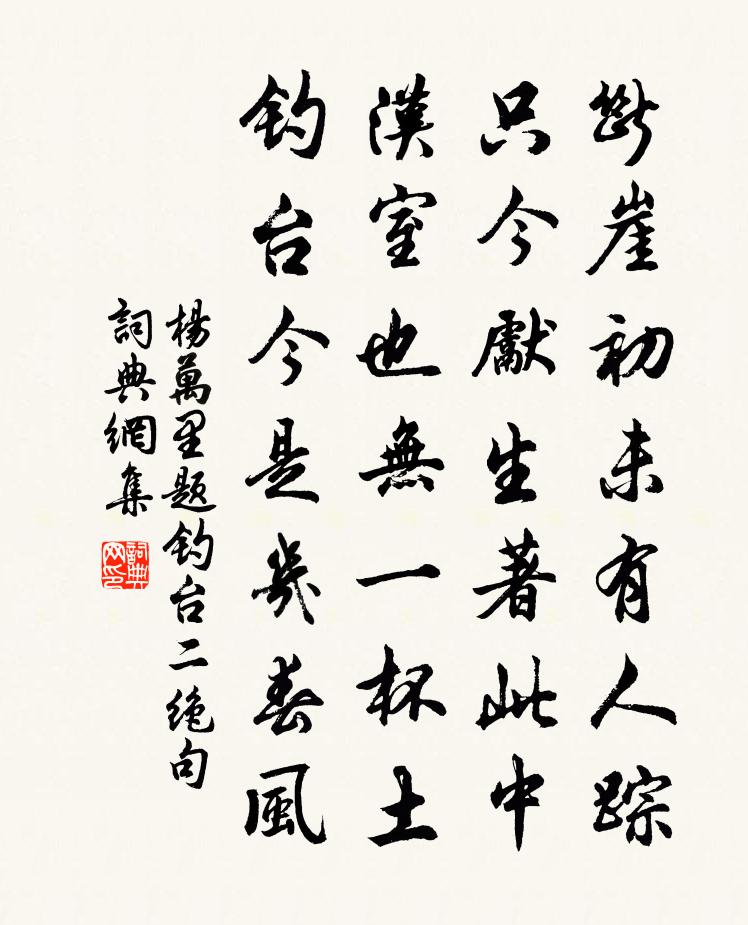 斷崖初未有人踪
只今獻生著此中
漢室也無一杯土
釣台今是幾春風
楊萬里題釣台二絶句
詞典網集
詞典网印